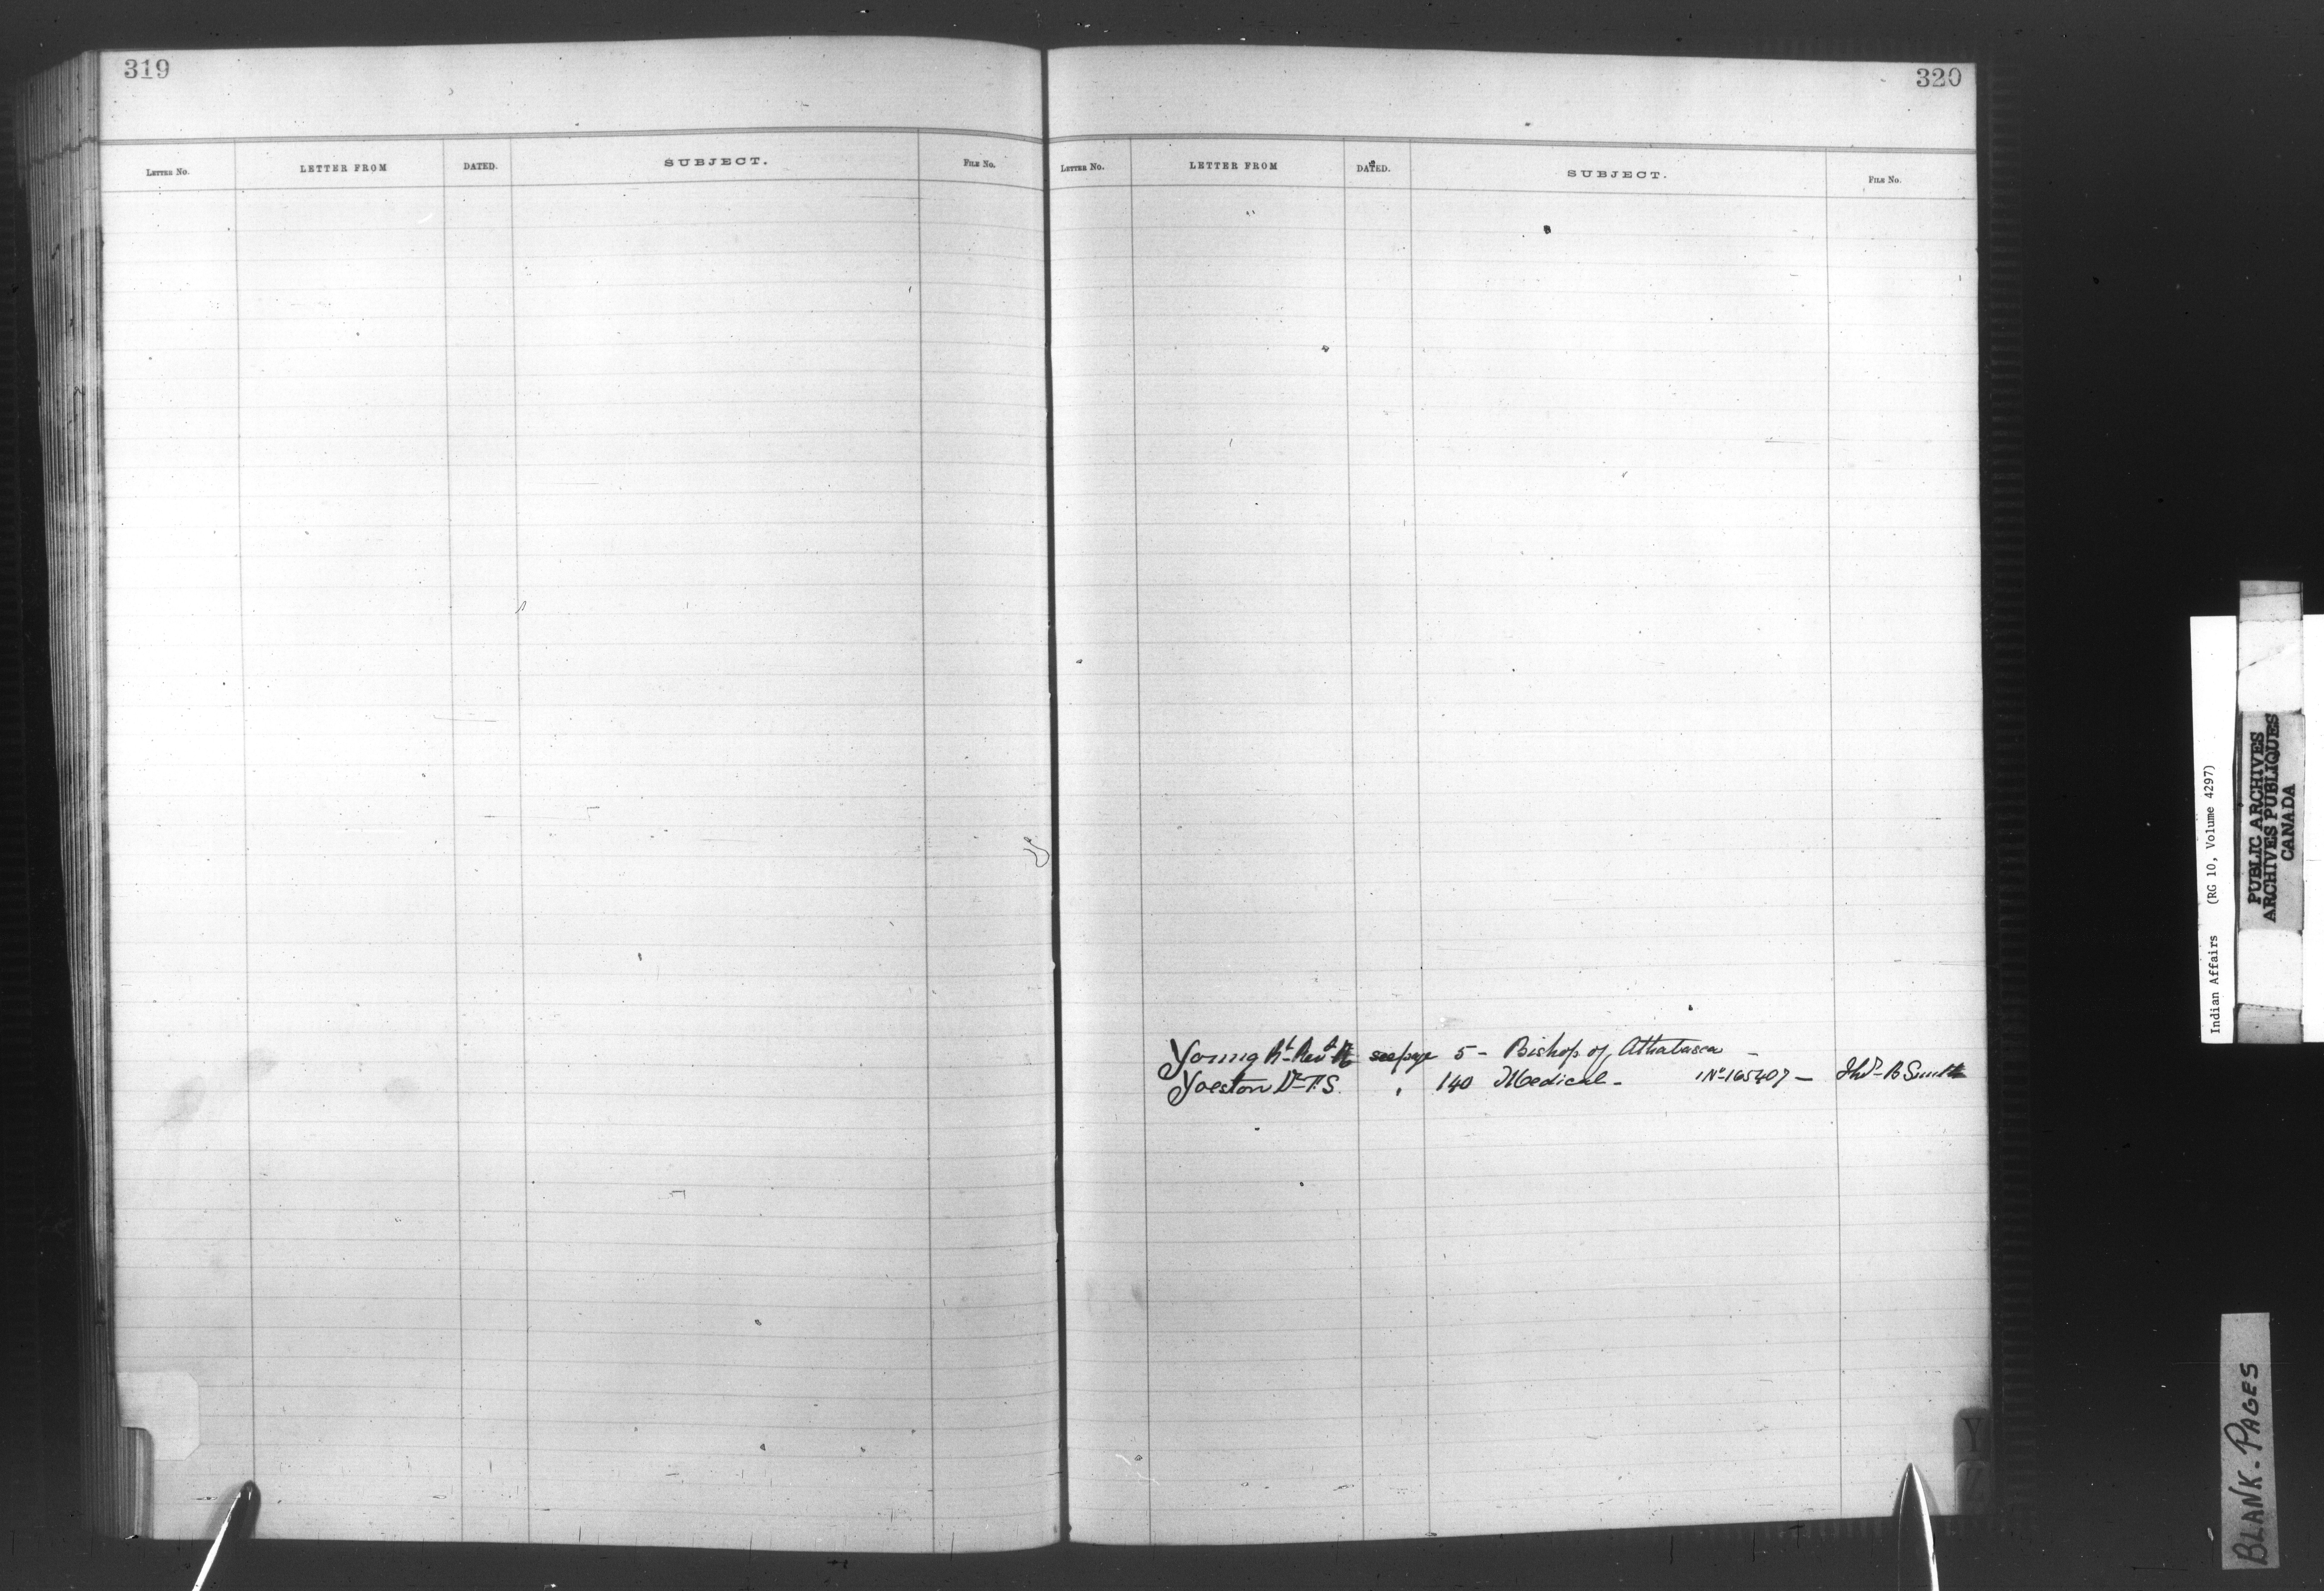 319
LETTER No. LETTER FROM DATED. SUBJECT. FILE No.
320
LETTER No. LETTER FROM DATED. SUBJECT. FILE No.
Young Rt. Revd. see page 5 - Bishop of Athabasca -
Yoeston Dr. T.S. " 140 Medical - No 165407 - B Smith
Y
Z
Indian Affairs (RG 10, Volume 4297)
PUBLIC ARCHIVES
ARCHIVES PUBLIQUES
CANADA
BLANK - PAGES